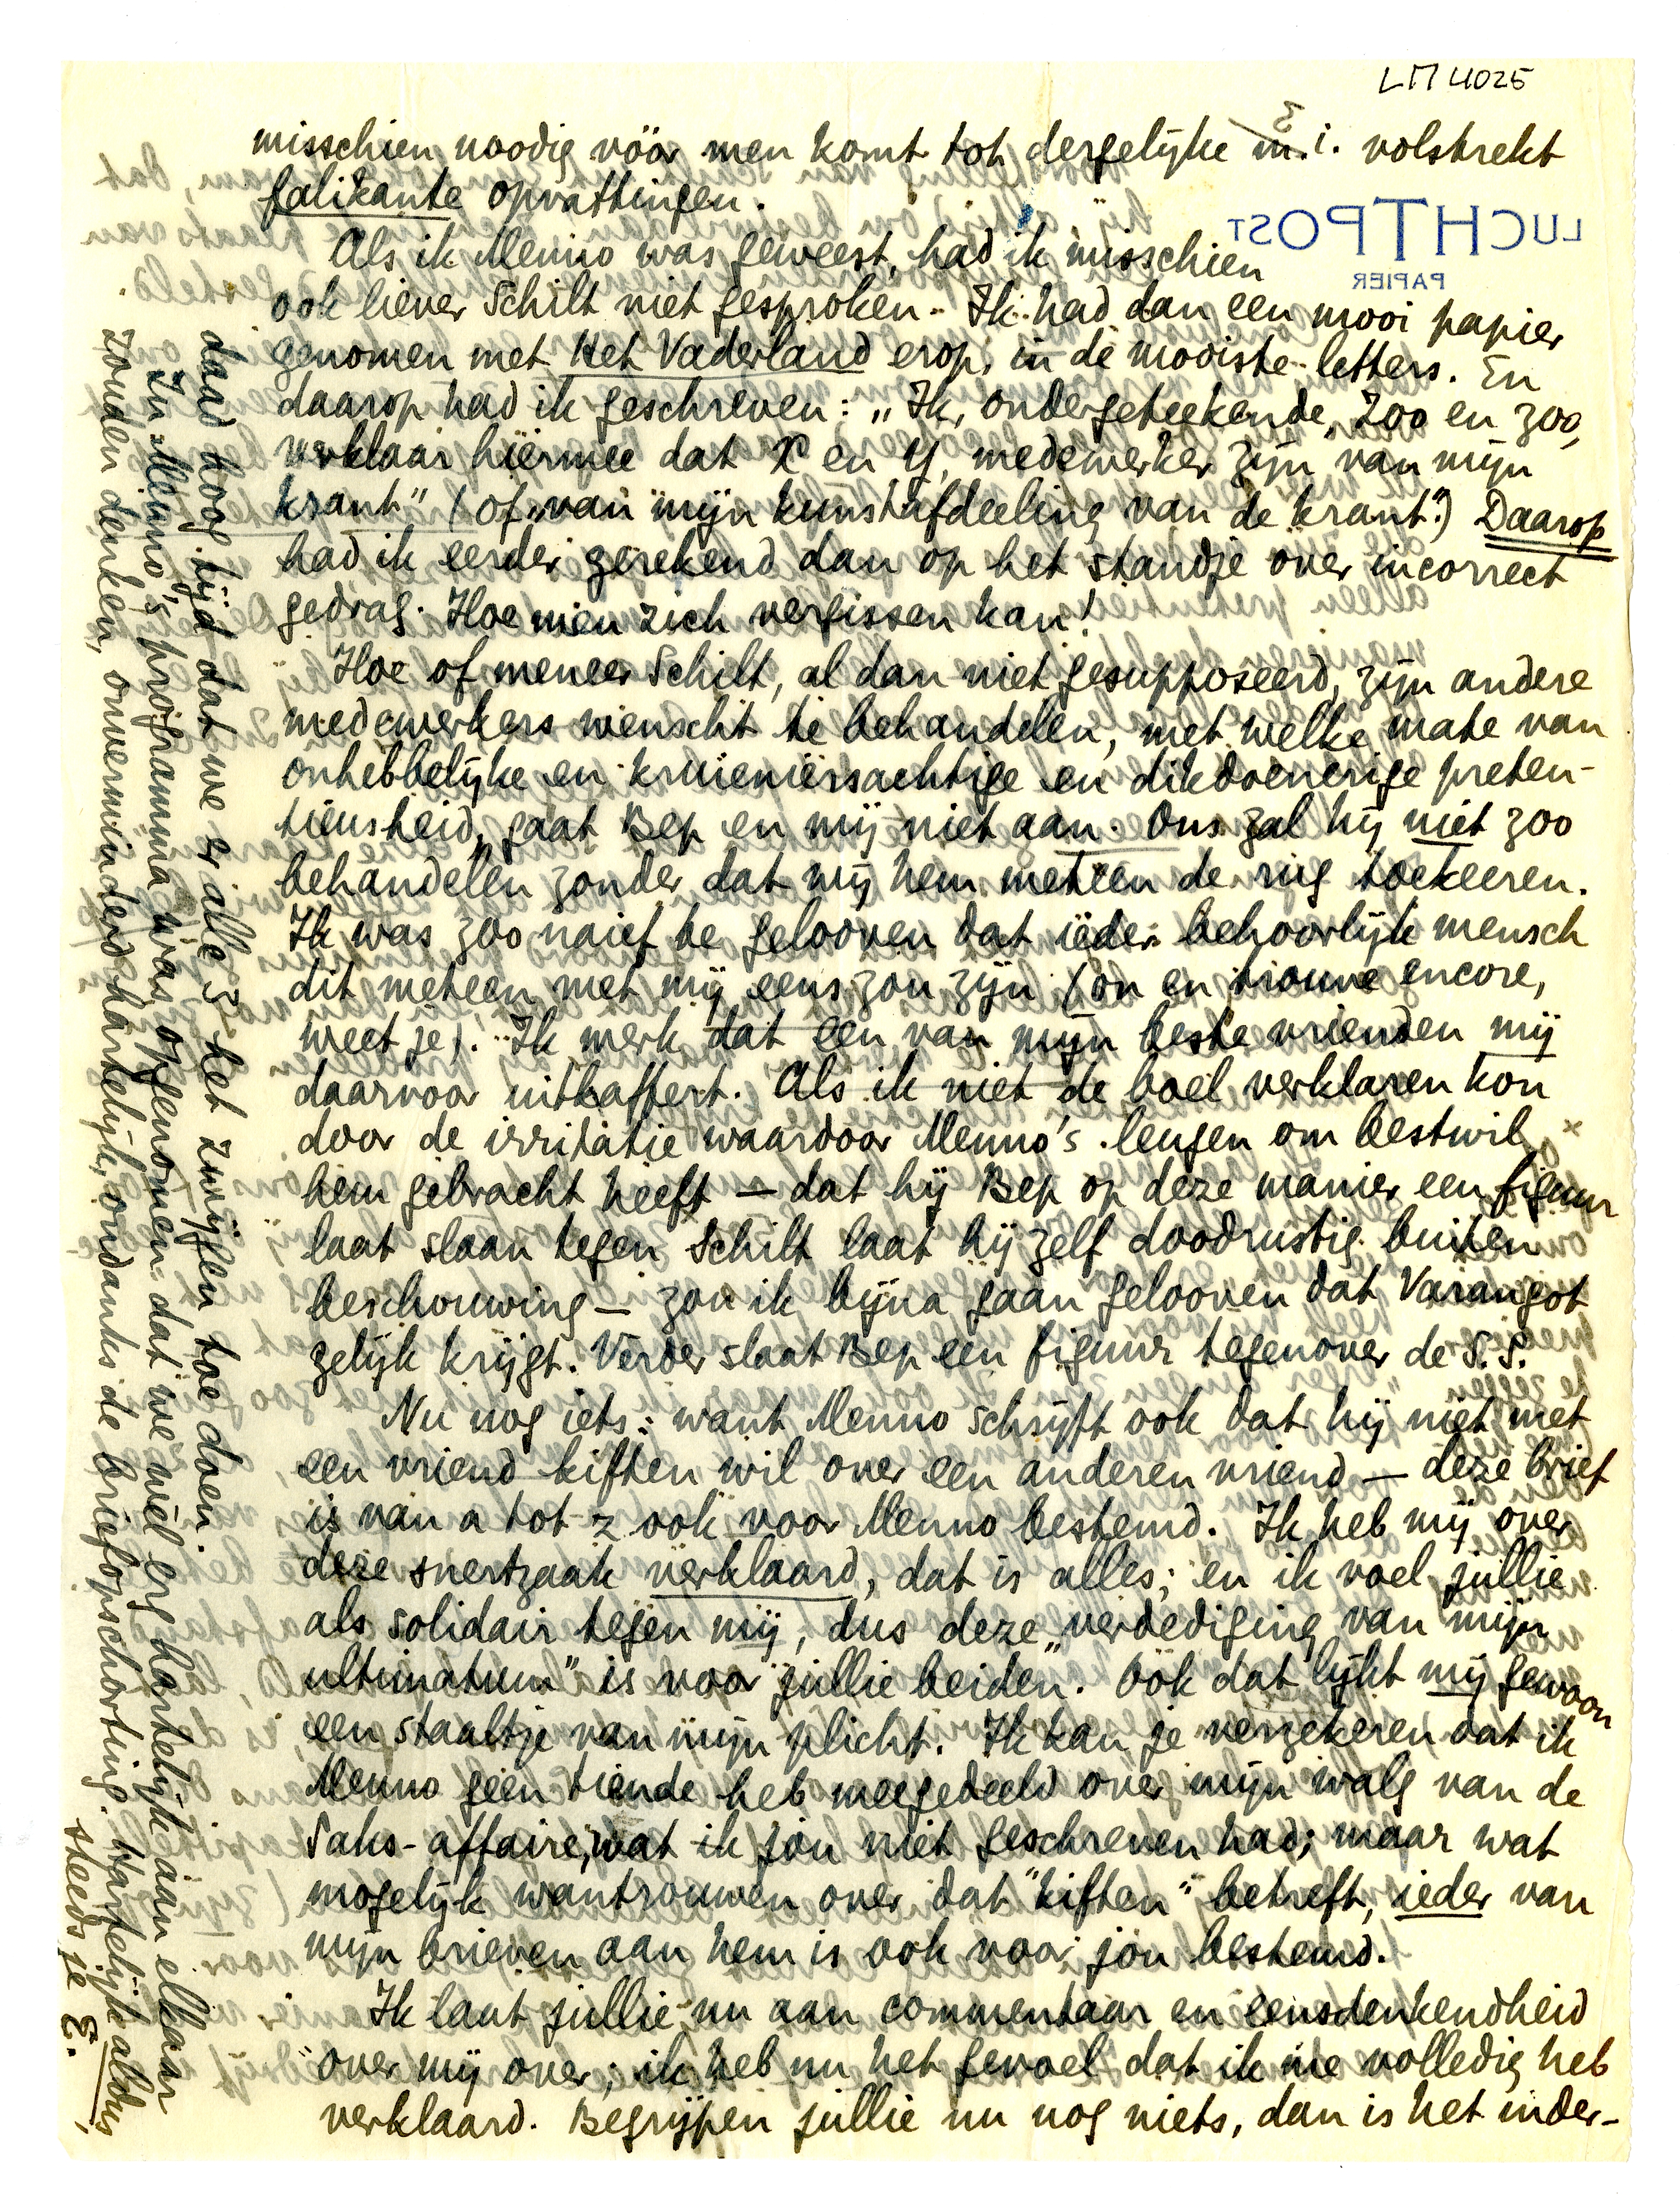 LM 4025
misschien noodig vóór men komt tot dergelijke m.i. volstrekt
falikante opvattingen.
LUCHTPOST
PAPIER
Als ik Menno was geweest, had ik misschien
ook liever Schilt niet gesproken. Ik had dan een mooi papier
genomen met Het Vaderland erop, in de mooiste letters. En
daarop had ik geschreven: „Ik, ondergeteekende, zoo en zoo,
verklaar hiermee dat X en Y, medewerker zijn van mijn
krant" (of „van mijn kunstafdeeling van de krant".) Daarop
had ik eerder gerekend dan op het standje over incorrect
gedrag. Hoe men zich vergissen kan!
Hoe of meneer Schilt, al dan niet gesupposeerd, zijn andere
medewerkers wenscht te behandelen, met welke mate van
onhebbelijke en kruieniersachtige en dikdoenerige preten-
tieusheid, gaat Bep en mij niet aan. Ons zal hij niet zoo
behandelen zonder dat wij hem meteen de rug toekeeren.
Ik was zoo naief te gelooven dat ieder behoorlijk mensch
dit meteen met mij eens zou zijn (on en trouve encore,
weet je). Ik merk dat een van mijn beste vrienden mij
daarvoor uitkaffert. Als ik niet de boel verklaren kon
door de irritatie waardoor Menno's leugen om bestwil
hem gebracht heeft — dat hij Bep op deze manier een figuur
laat slaan tegen Schilt laat hij zelf doodrustig buiten
beschouwing — zou ik bijna gaan gelooven dat Varangot
gelijk krijgt. Verder slaat Bep een figuur tegenover de S.S.
Nu nog iets: want Menno schrijft ook dat hij niet met
een vriend kiften wil over een anderen vriend — deze brief
is van a tot z ook voor Menno bestemd. Ik heb mij over
deze snertzaak verklaard, dat is alles; en ik voel jullie
als solidair tegen mij, dus deze „verdediging van mijn
ultimatum" is voor jullie beiden. Ook dat lijkt mij gewoon
een staaltje van mijn plicht. Ik kan je verzekeren dat ik
Menno geen tiende heb meegedeeld over mijn walg van de
Saks-affaire, wat ik jou niet geschreven had; maar wat
mogelijk wantrouwen over dat "kiften" betreft, ieder van
mijn brieven aan hem is ook voor jou bestemd.
Ik laat jullie nu aan commentaar en eensdenkendheid
over mij over; ik heb nu het gevoel dat ik me volledig heb
verklaard. Begrijpen jullie nu nog niets, dan is het inder-
daad hoog tijd dat we er alle 3 het zwijgen toe doen.
In Menno's programma was opgenomen dat we wel erg hartelijk aan elkaar
zouden denken, onverminderd hartelijk, ondanks de briefopschorting. Hartelijk aldus,
steeds je E.